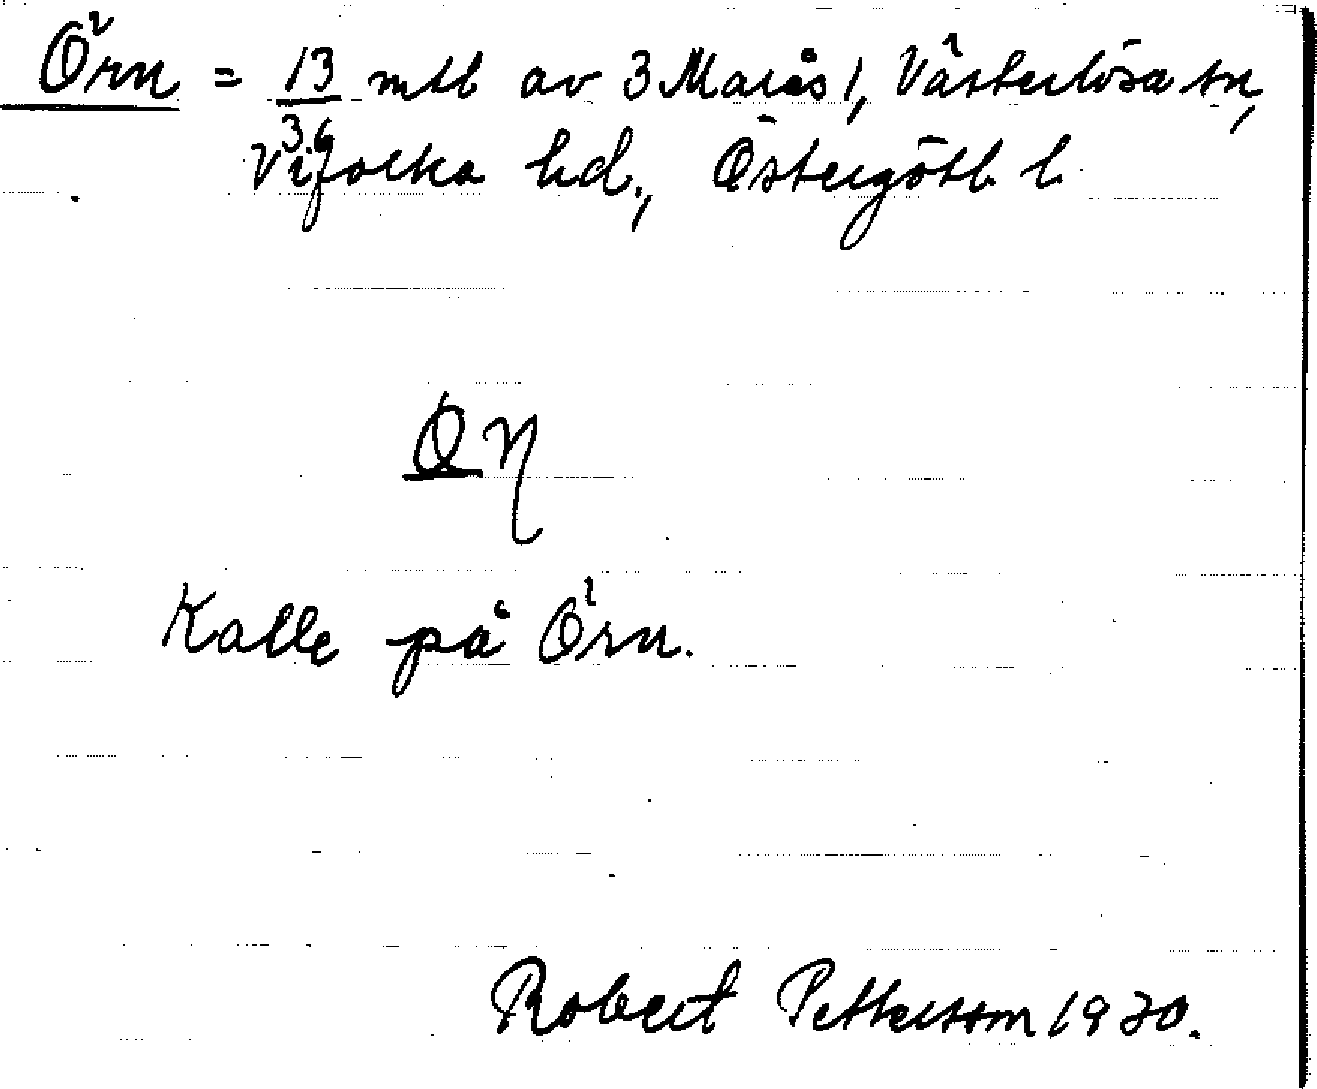 Örn = 13/36 mtl av 3 Marås 1, Västerlösa sn,
Vifolka hd., Östergötl. l.
Kalle på Örn.
Robert Pettersson 1930.